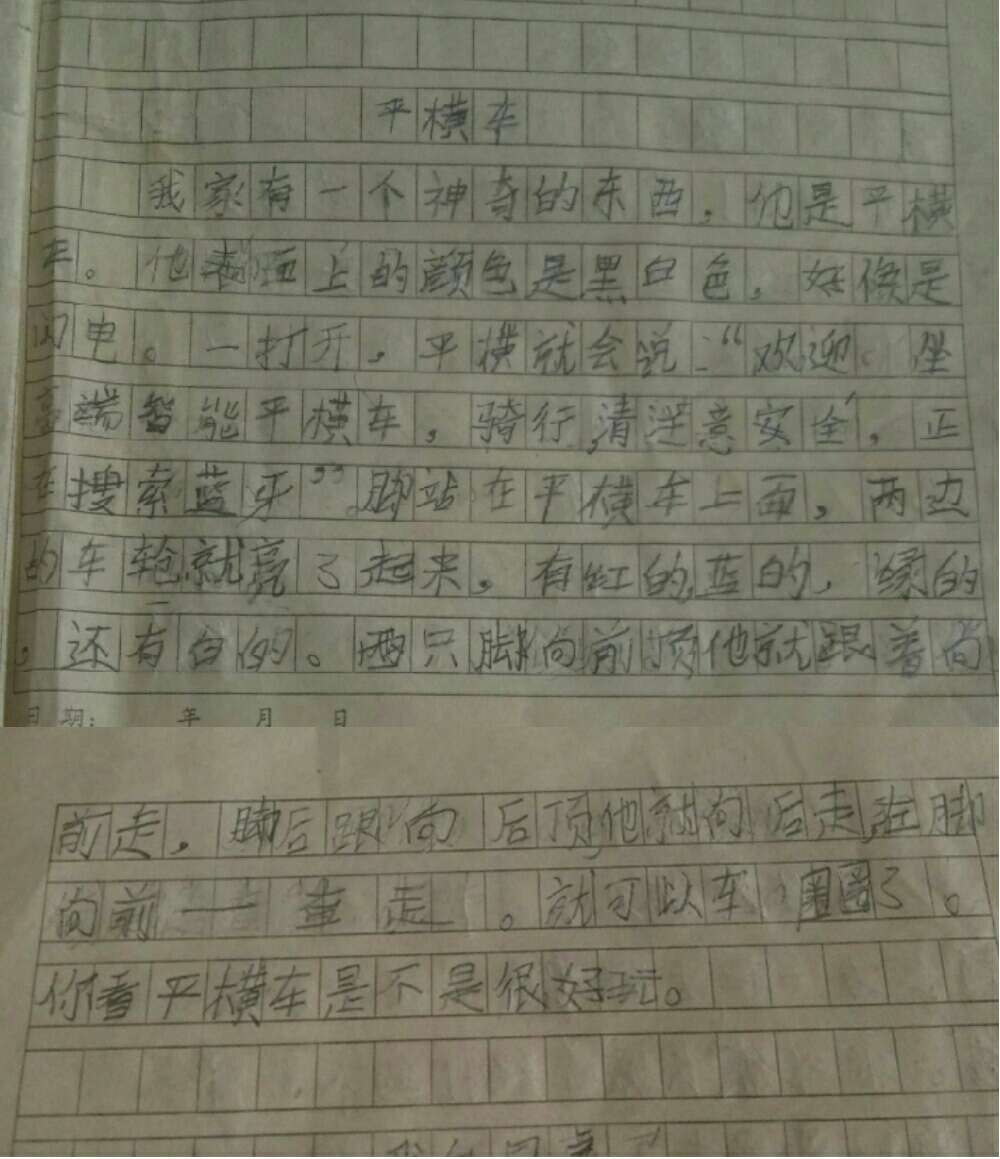 平横车
我家有一个神奇的东西，他是平横
车。他表面上的颜色是黑白色，好像是
闪电。一打开，平横就会说：“欢迎 坐
高端智能平横车，骑行，请注意安全，正
在搜索蓝牙”脚站在平横车上面，两边
的车轮就亮了起来，有红的，蓝的，绿的
，还有白的。两只脚向前顶他就跟着向
前走，脚后跟向后顶，他就向后走，左脚
向前一直走。就可以车圈圈了。
你看平横车是不是很好玩。
日期： 年 月 日